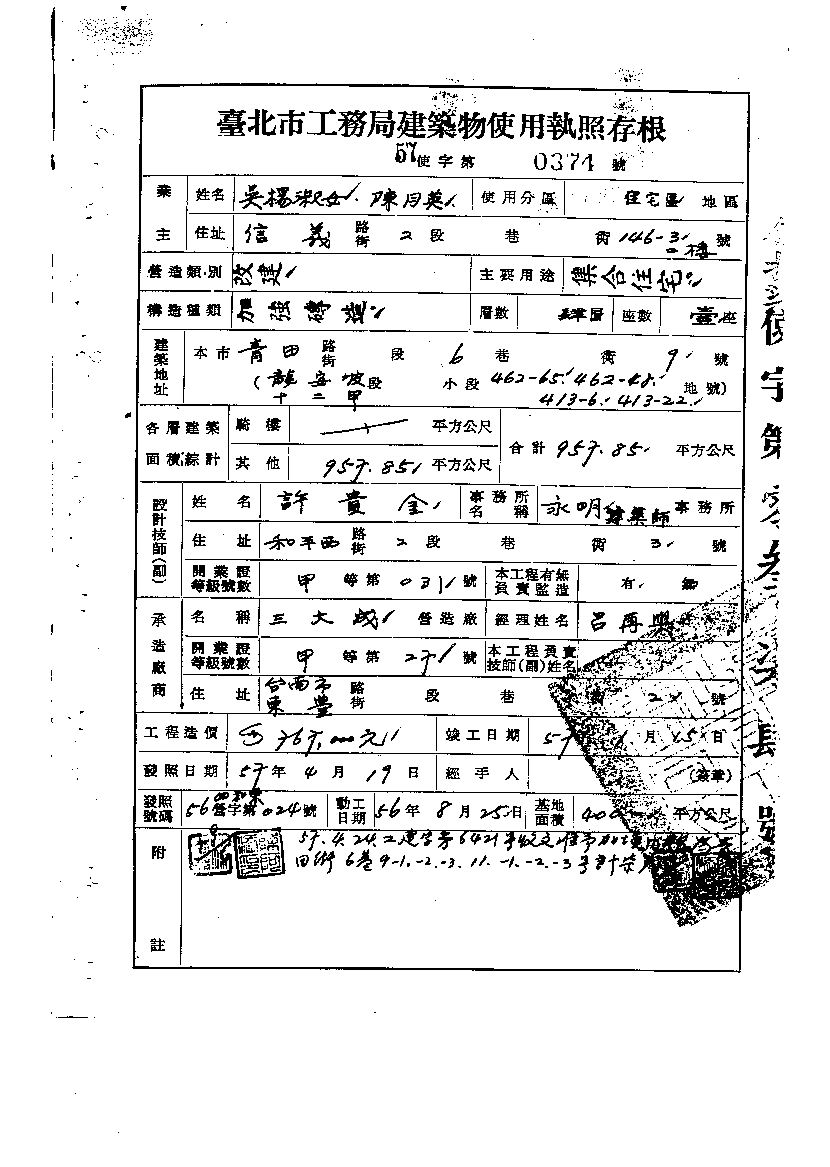 臺北市工務局建築物使用執照存根
57使字第 0374 號
業主 姓名 吳楊淑女、陳月英 使用分區 住宅區 地區
住址 信義 路街 2 段 巷 街 146-3 號 二樓
營造類別 改建 主要用途 集合住宅
構造種類 加強磚造 層數 肆層 座數 壹座
建築地址 本市 青田 路街 段 6 巷 街 9 號
(龍安坡段 十二甲 小段 462-65 462-48 413-6 413-22 地號)
各層建築面積綜計 騎樓 平方公尺 合計 957.85 平方公尺
其他 957.85 平方公尺
設計技師(副) 姓名 許貴金 事務所名稱 永明建築師事務所
住址 和平西 路街 2 段 巷 街 3 號
開業證等級號數 甲 等第 031 號 本工程有無負責監造 有
承造廠商 名稱 三大成 營造廠 經理姓名 呂再興
開業證等級號數 甲 等第 271 號 本工程負責技師(副)姓名
住址 台南市東豐 路街 段 巷 街 2 號
工程造價 767,000元 竣工日期 57 1 月 15 日
發照日期 57 年 4 月 19 日 經手人 (簽章)
發照號碼 56 營字第 024 號 動工日期 56 年 8 月 25 日 基地面積 400 平方公尺
附註 57.4.24.
田街6巷9-1.-2.-3.11.-1.-2.-3號